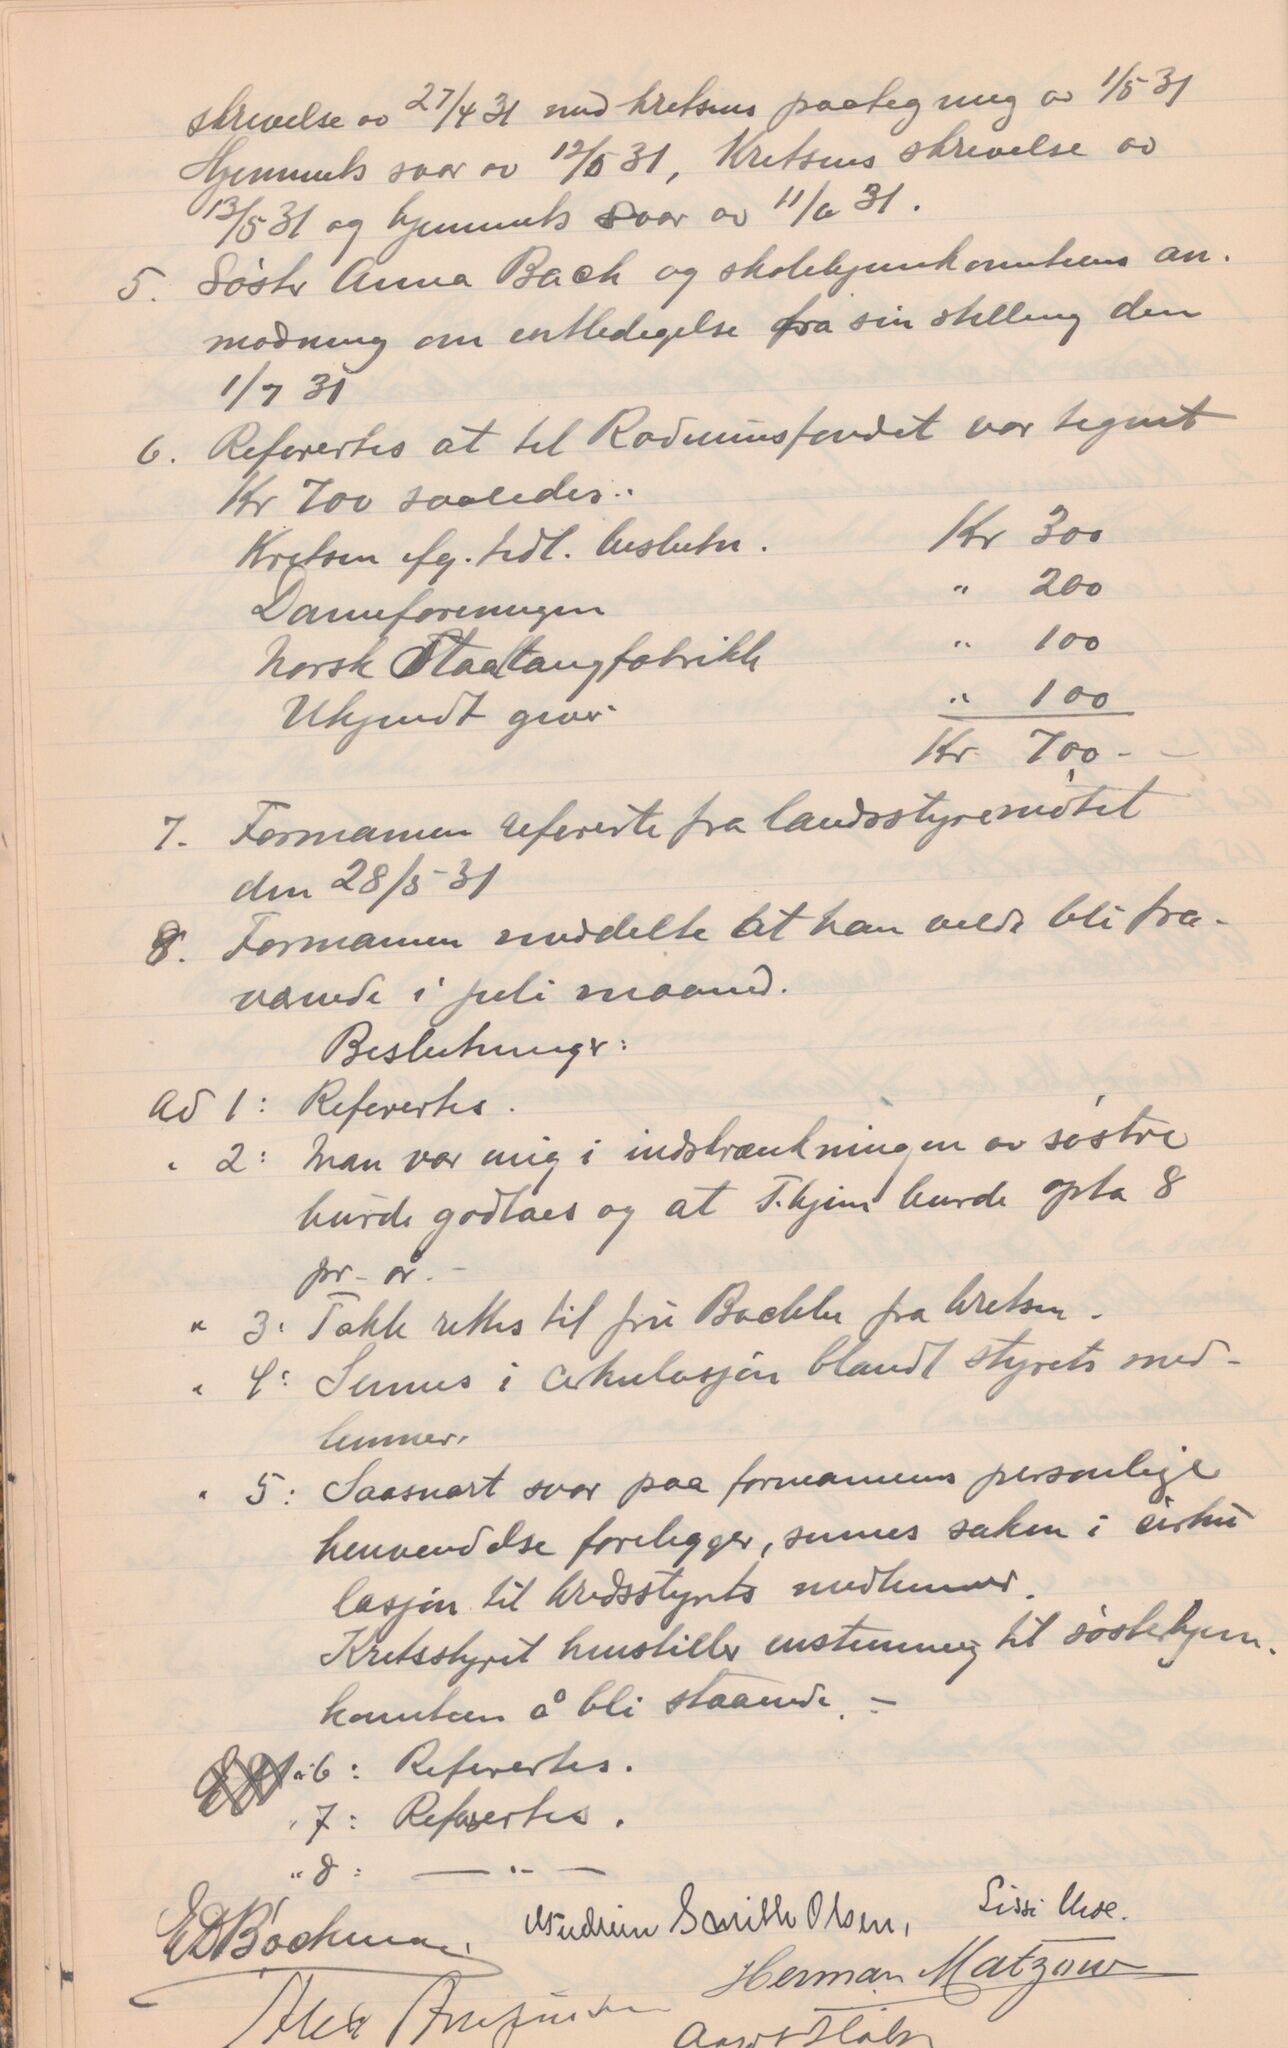 skrivelse av 27/4 31 med kretsens paategning av 1/5 31
Hjemmets svar av 12/5 31, Kretsens skrivelse av
13/5 31 og hjemmets svar av 11/6 31.
5. Søster Anna Bach og skolehjemkomiteens an-
modning om entledigelse fra sin stilling den
1/7 31
6. Refertes at til Radiumsfondet var tegnet
Kr 700 saaledes:
Kretsen efg. tidl. beslutn. Kr 300
Dameforeningen " 200
Norsk Staaltaugfabrikk " 100
Ukjendt giver " 100
Kr 700 -
7. Formannen refererte fra landsstyremøtet
den 28/5 31
8. Formannen meddelte at han vilde bli fra-
værende i juli maaned.
Beslutninger:
Ad 1: Refertes.
" 2: Man var enig i indskrænkningen av søstre
burde godtaes og at T. hjem burde opta 8
pr. år. -
" 3: Takk rettes til fru Bachke fra kretsen.
" 4: Sennes i cirkulasjon blandt styrets med-
lemmer.
" 5: Saasnart svar paa formannens personlige
henvendelse foreligger, sennes saken i cirku
lasjon til kredsstyrets medlemmer.
Kretsstyret henstiller enstemmig til søsterhjem-
komiteen å bli staaende. -
" 6: Refertes.
" 7: Refertes.
" 8: — " —
E D Bachman
Smith Olsen,
Herman Matzow